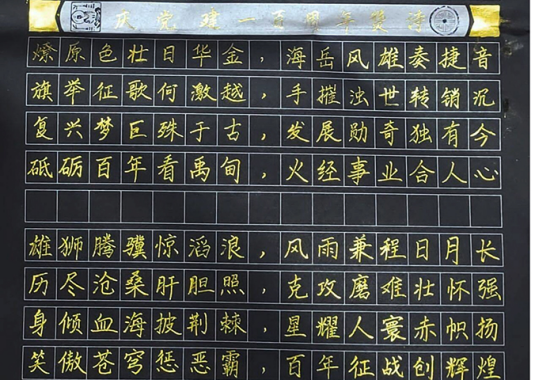 庆党建一百周年集诗
燎原色壮日华金，海岳风雄奏捷音
旗举征歌何激越，手摧浊世转销沉
复兴梦巨殊于古，发展勋奇独有今
砥砺百年看禹甸，火经事业合人心
雄狮腾骥惊滔浪，风雨兼程日月长
历尽沧桑肝胆照，克攻磨难壮怀强
身倾血海披荆棘，星耀人寰赤帜扬
笑傲苍穹惩恶霸，百年征战创辉煌